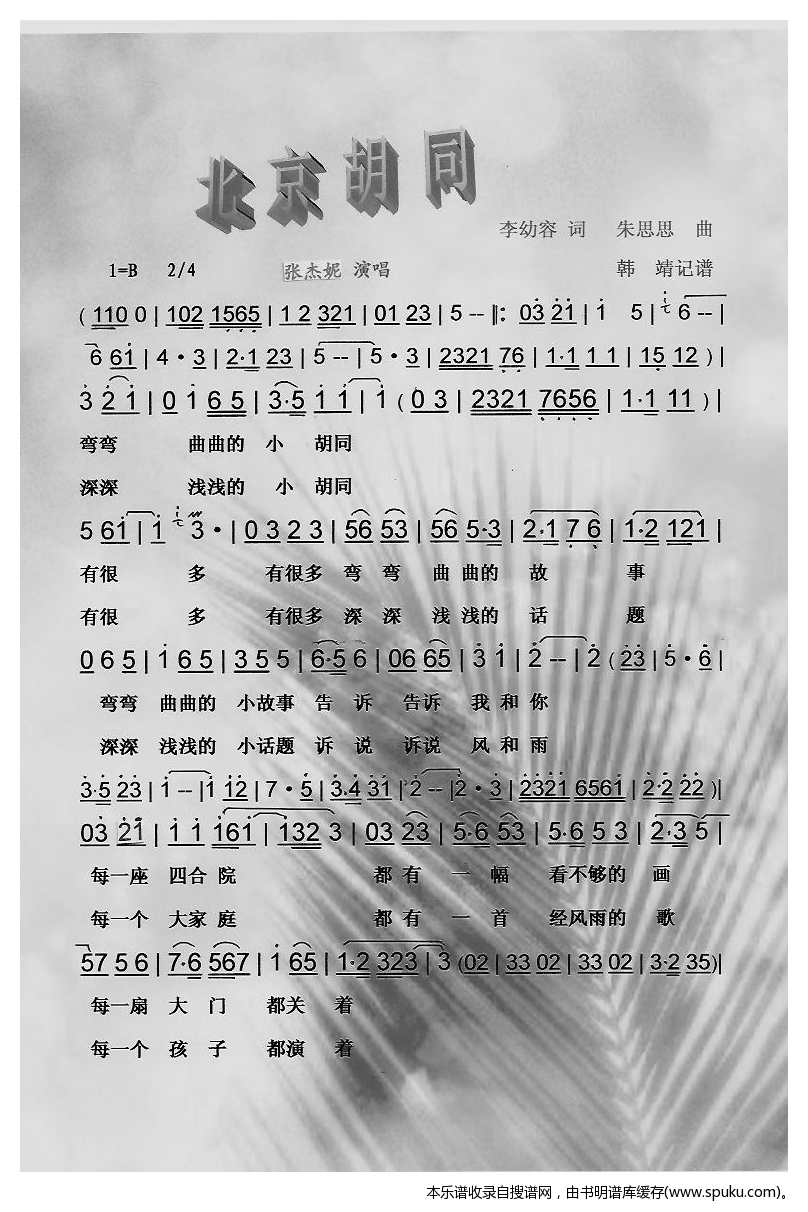 北京胡同
李幼容 词 朱思思 曲
1=B 2/4 张杰妮 演唱 韩 靖记谱
( 110 0 | 102 1565 | 1 2 321 | 01 23 | 5 -- ‖: 03 21 | 1 5 | 6 -- |
6 61 | 4 · 3 | 2·1 23 | 5 -- | 5 · 3 | 2321 76 | 1·1 1 1 | 15 12 ) |
3 2 1 | 0 1 6 5 | 3·5 1 1 | 1 ( 0 3 | 2321 7656 | 1·1 11 ) |
弯弯 曲曲的 小 胡同
深深 浅浅的 小 胡同
5 61 | 1 3 · | 0 3 2 3 | 56 53 | 56 5·3 | 2·1 7 6 | 1·2 121 |
有很 多 有很多 弯 弯 曲 曲的 故 事
有很 多 有很多 深 深 浅 浅的 话 题
0 6 5 | 1 6 5 | 3 5 5 | 6·5 6 | 06 65 | 3 1 | 2 -- | 2 ( 23 | 5 · 6 |
弯弯 曲曲的 小故事 告 诉 告诉 我 和 你
深深 浅浅的 小话题 诉 说 诉说 风 和 雨
3·5 23 | 1 -- | 1 12 | 7 · 5 | 3·4 31 | 2 -- | 2 · 3 | 2321 6561 | 2·2 22 )|
03 21 | 1 1 161 | 132 3 | 03 23 | 5·6 53 | 5·6 5 3 | 2·3 5 |
每一座 四合 院 都 有 一 幅 看不够的 画
每一个 大家 庭 都 有 一 首 经风雨的 歌
57 5 6 | 7·6 567 | 1 65 | 1·2 323 | 3 (02 | 33 02 | 33 02 | 3·2 35)|
每一扇 大 门 都关 着
每一个 孩 子 都演 着
本乐谱收录自搜谱网，由书明谱库缓存(www.spuku.com)。